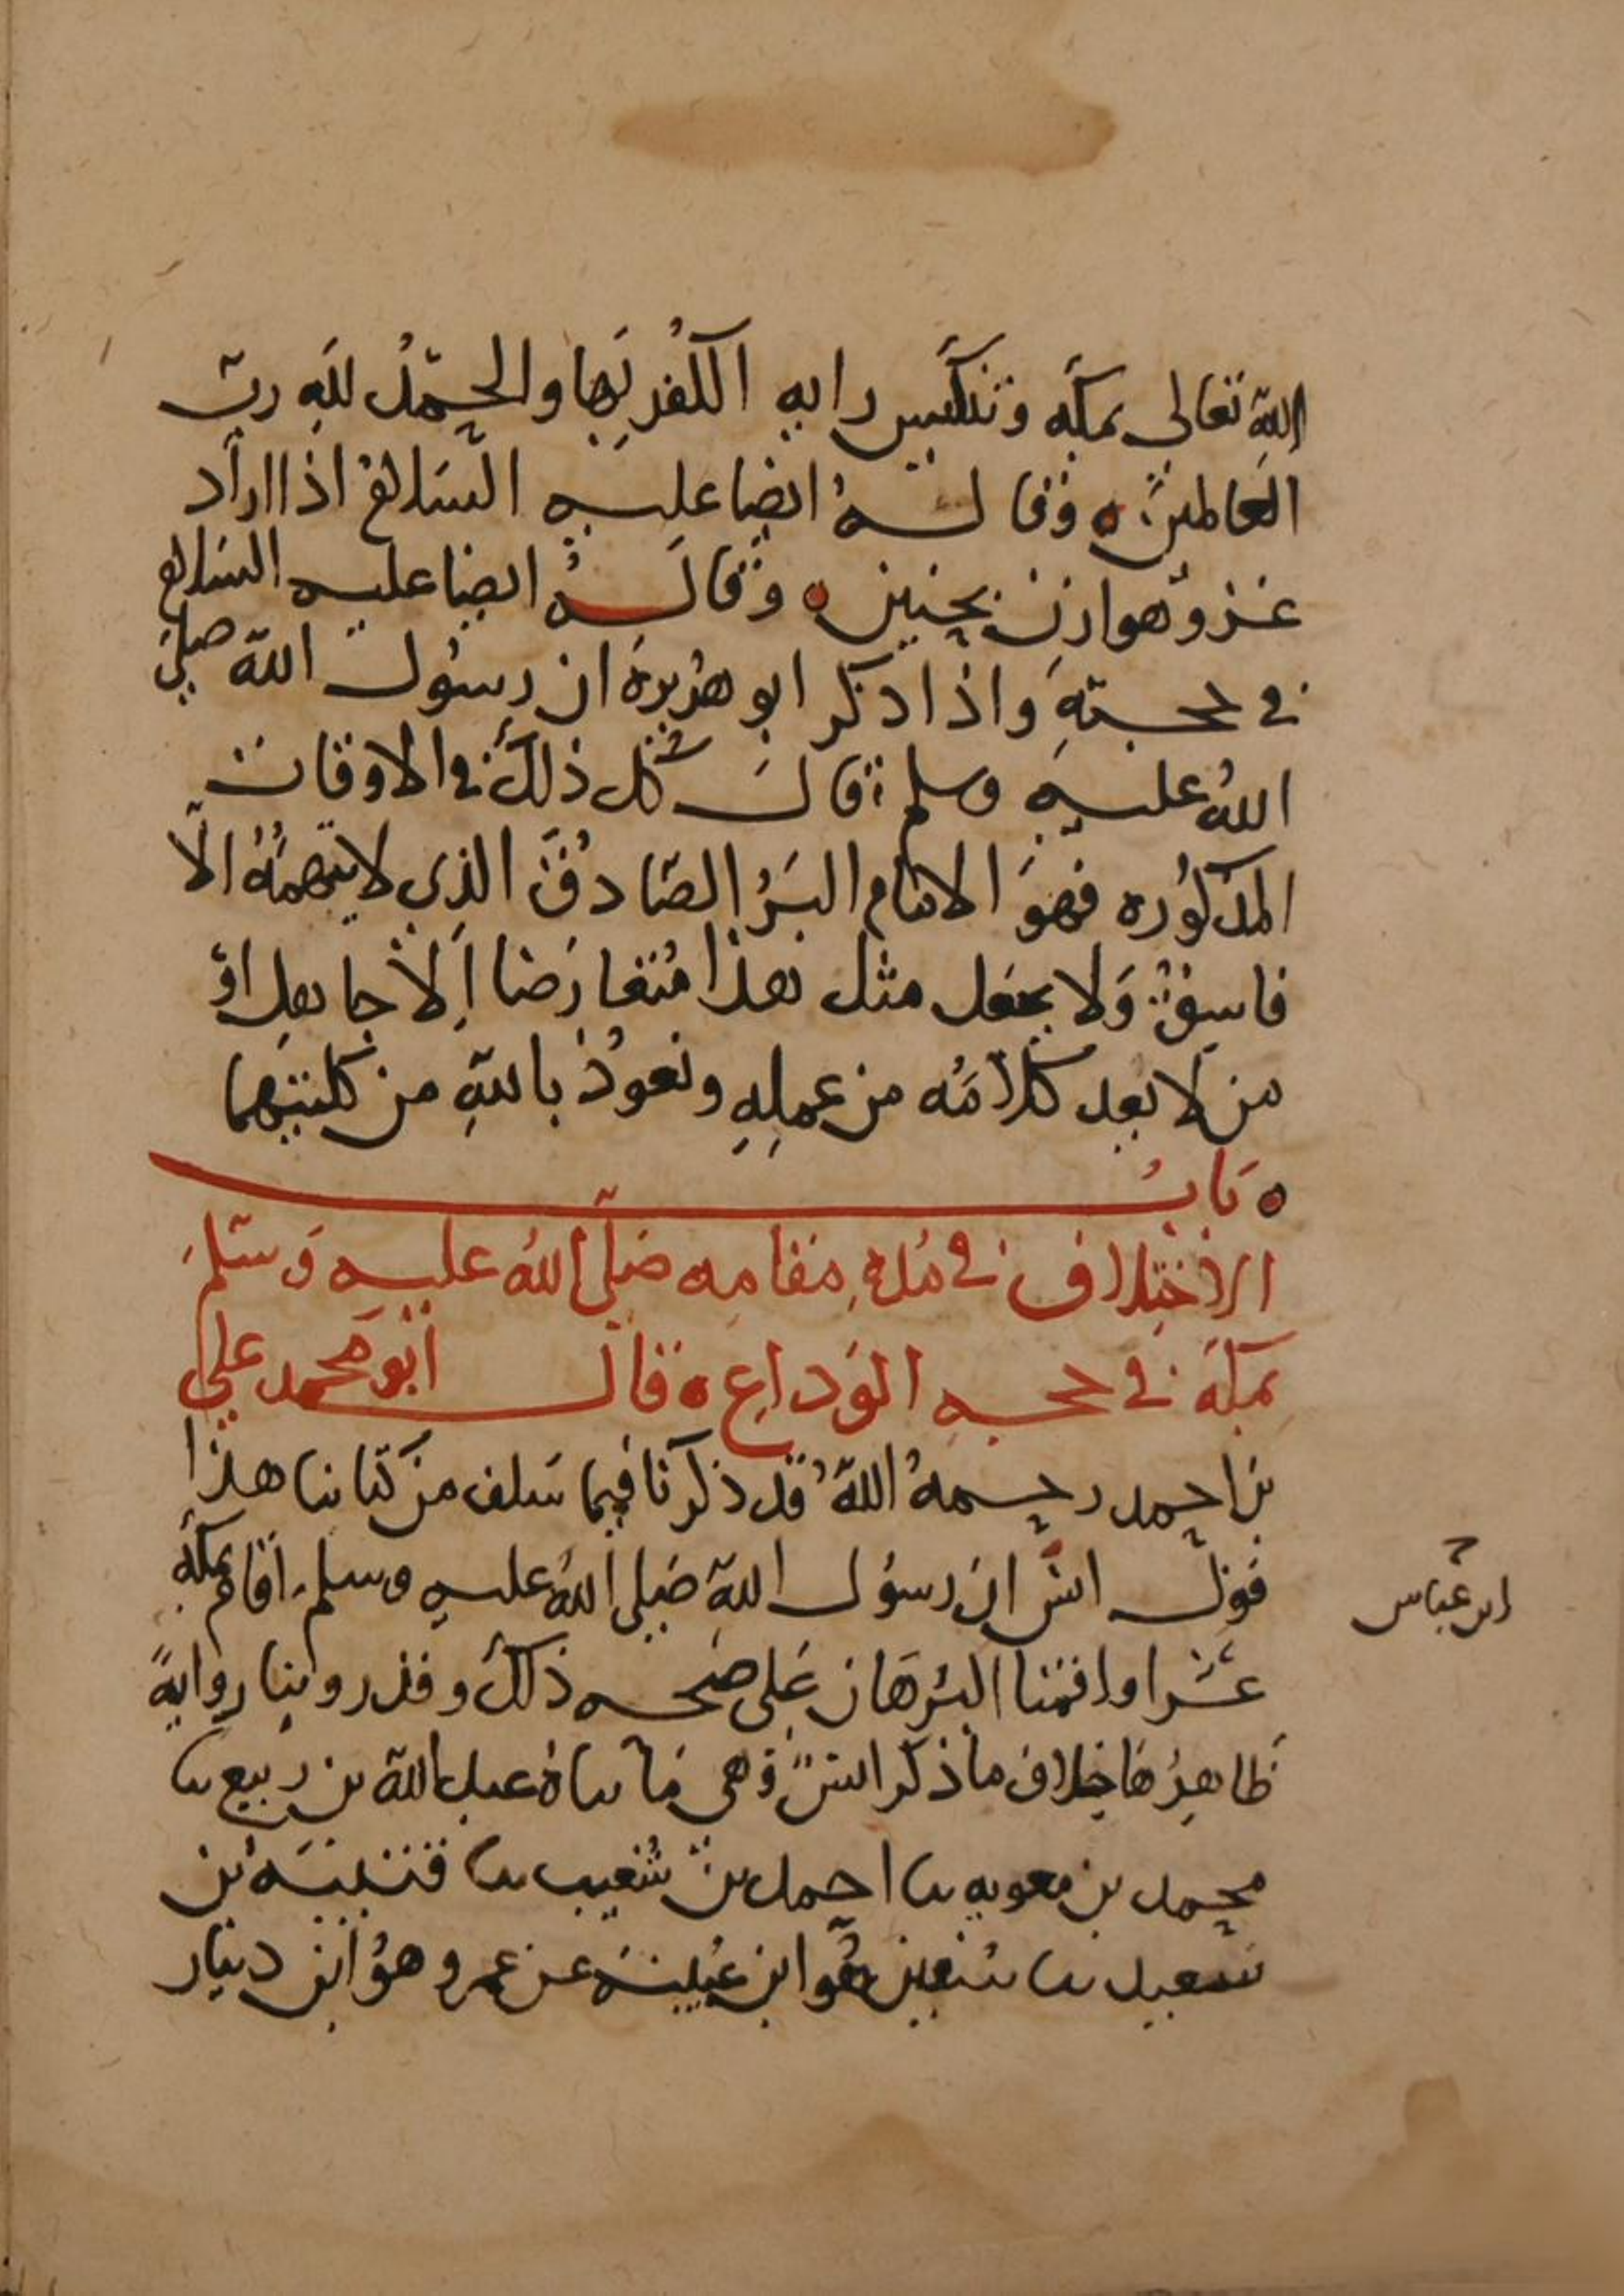 الله تعالى بمكه وتنكيس رايه الكفر بها والحمد لله رب
العالمين ٥ وقاله ايضا عليه السلام اذ اراد
غزو هوازن بحنين ٥ وقاله ايضا عليه السلام
في حجته واذا ذكر ابو هريرة ان رسول الله صلى
الله عليه وسلم قال كل ذلك في الاوقات
المذكوره فهو الامام البر الصادق الذي لا يتهمه الا
فاسق ولا يجعل مثل هذا متعارضا الا جاهل او
من لا يعد كلامه من عمله ونعوذ بالله من كلتيهما
٥ باب
الاختلاف في مدة مقامه صلى الله عليه وسلم
بمكة في حجه الوداع ٥ قال ابو محمد علي
بن احمد رحمه الله قد ذكرنا فيما سلف من كتابنا هذا
قول انس ان رسول الله صلى الله عليه وسلم اقام بمكة
عشرا واقمنا البرهان على صحه ذلك وقد روينا رواية
ظاهرها خلاف ما ذكر انس وهي ما ساه عبد الله بن ربيع سا
محمد بن معويه سا احمد بن شعيب سا قتيبة بن
سعيد سا سفين هو ابن عيينة عن عمرو هو ابن دينار
ابن عباس